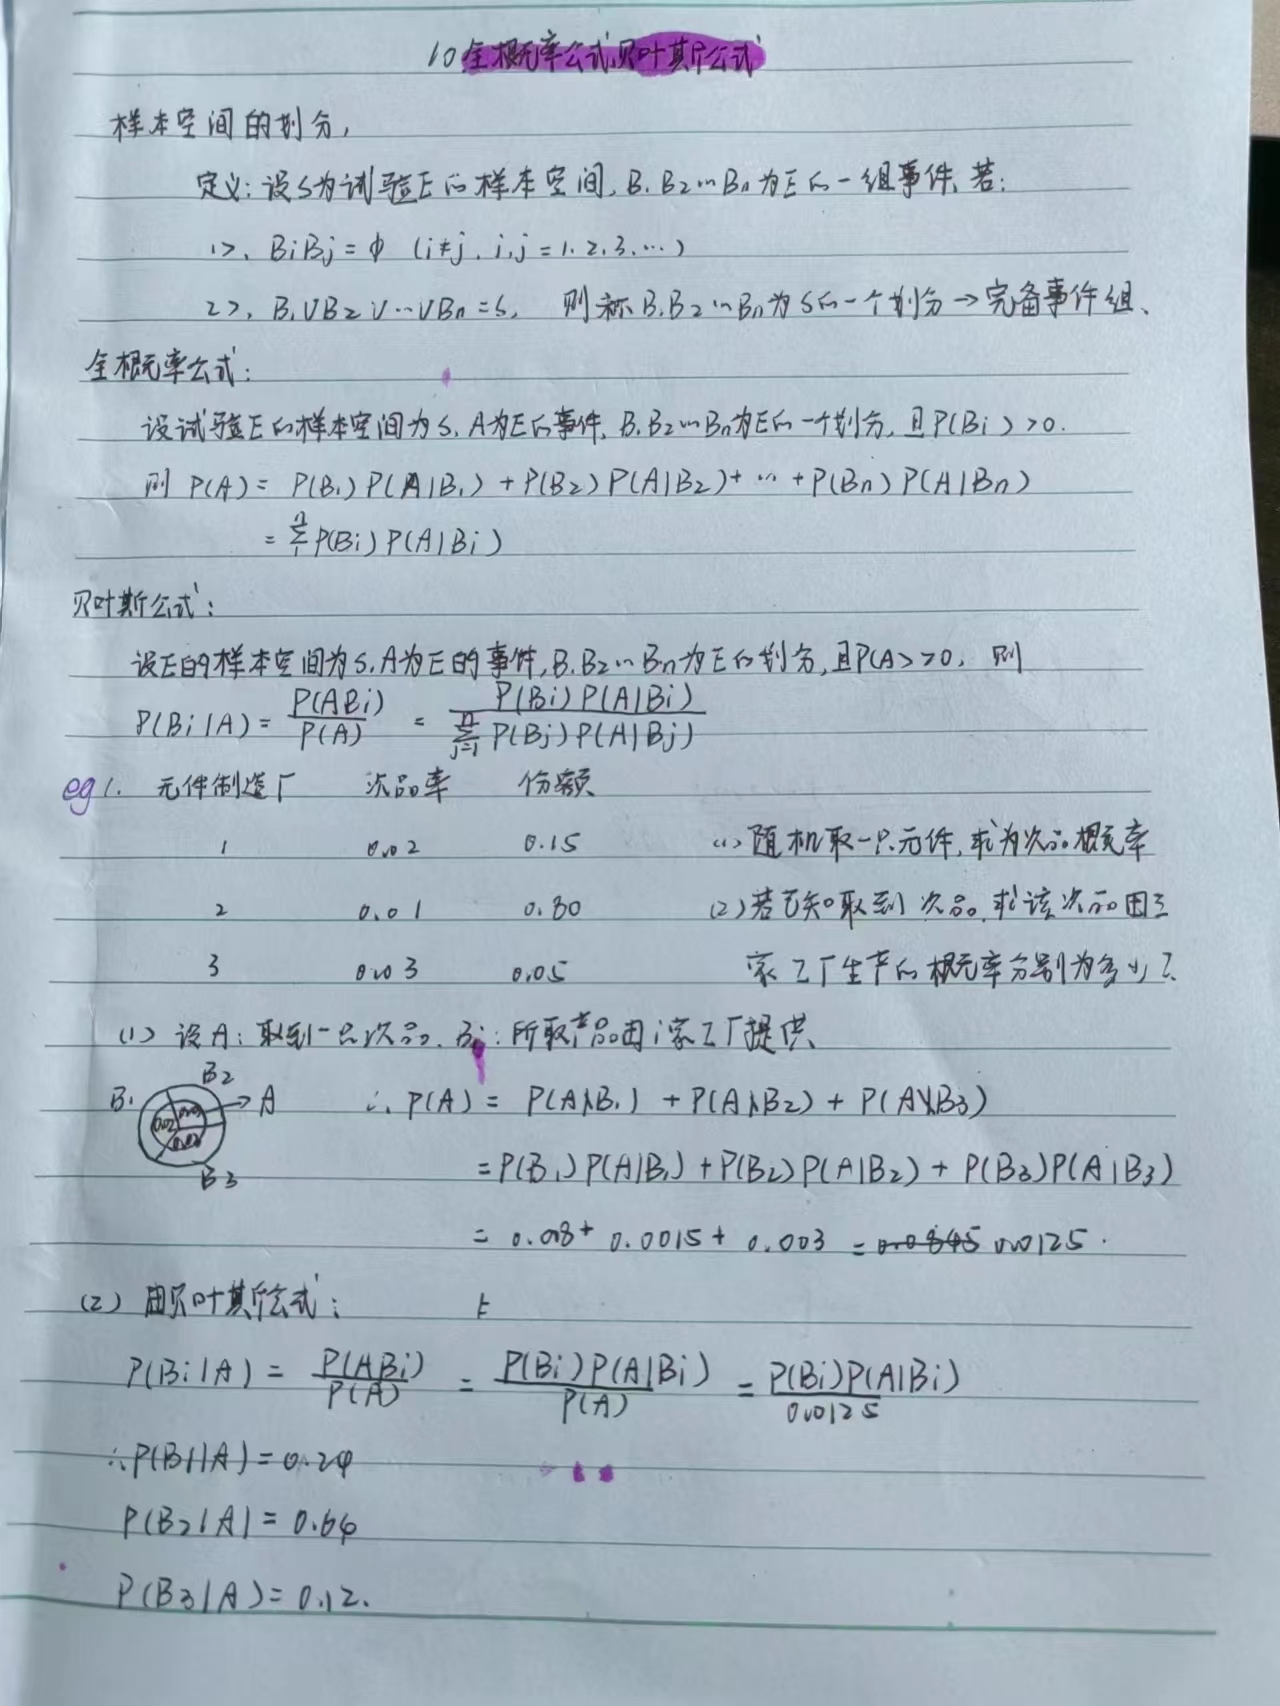 10 全概率公式、贝叶斯公式
样本空间的划分,
定义:设S为试验E的样本空间,B₁B₂…Bₙ为E的一组事件,若:
1>. BiBj=φ (i≠j, i,j=1.2.3.…)
2>. B₁∪B₂∪…∪Bₙ=S, 则称B₁B₂…Bₙ为S的一个划分→完备事件组、
全概率公式:
设试验E的样本空间为S,A为E的事件,B₁B₂…Bₙ为E的一个划分,且P(Bi)>0.
则 P(A)= P(B₁)P(A|B₁)+P(B₂)P(A|B₂)+…+P(Bn)P(A|Bn)
= Σ₁ⁿ P(Bi)P(A|Bi)
贝叶斯公式:
设E的样本空间为S,A为E的事件,B₁B₂…Bn为E的划分,且P(A>>0, 则
P(Bi|A)= P(ABi)/P(A) = P(Bi)P(A|Bi)/Σⁿⱼ₌₁P(Bj)P(A|Bj)
eg1. 元件制造厂 次品率 份额
1 0.02 0.15 (1)随机取一只元件,求为次品概率
2 0.01 0.80 (2)若已知取到次品,求该次品由三
3 0.03 0.05 家工厂生产的概率分别为多少?
(1) 设A:取到一只次品. Bi:所取产品由i家工厂提供
B₁ B₂ A ∴P(A)= P(AB₁)+P(AB₂)+P(AB₃)
B₃ =P(B₁)P(A|B₁)+P(B₂)P(A|B₂)+P(B₃)P(A|B₃)
= 0.008+0.0015+0.003=0.0125.
(2) 由贝叶斯公式:
P(Bi|A)= P(ABi)/P(A) = P(Bi)P(A|Bi)/P(A) = P(Bi)P(A|Bi)/0.0125
∴P(B1|A)=0.24
P(B2|A)=0.64
P(B3|A)=0.12.